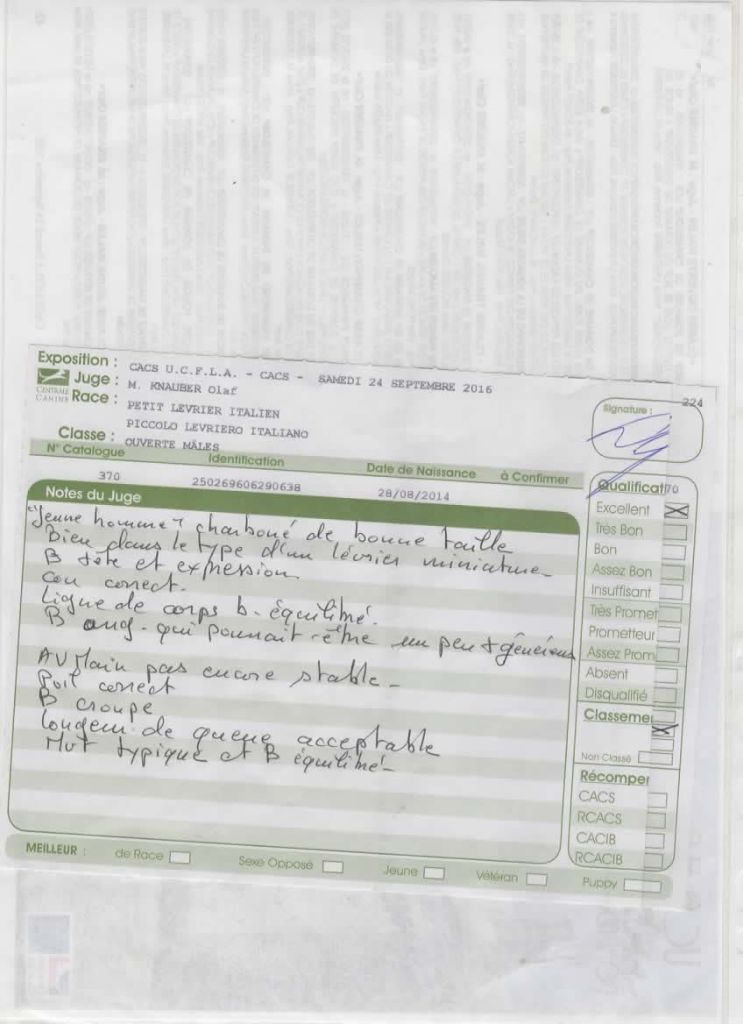 Exposition : CACS U.C.F.L.A. - CACS - SAMEDI 24 SEPTEMBRE 2016
Juge : M. KNAUBER Olaf
CENTRALE CANINE
Race : PETIT LEVRIER ITALIEN
PICCOLO LEVRIERO ITALIANO
Classe : OUVERTE MÂLES
224
Signature :
N° Catalogue Identification Date de Naissance à Confirmer
370 250269606290638 28/08/2014
Notes du Juge
"Jeune homme" charboné de bonne taille
Bien dans le type d'un lévrier miniature
B tête et expression
cou correct.
Ligne de corps b. équilibré.
B ang. qui pourrait être un peu + généreux
AV Main pas encore stable -
Poil correct
B croupe
longeur de queue acceptable
Mvt typique et B équilibré -
Qualificati 70
Excellent
Très Bon
Bon
Assez Bon
Insuffisant
Très Promet
Prometteur
Assez Prom
Absent
Disqualifié
Classeme
Non Classé
Récomper
CACS
RCACS
CACIB
RCACIB
MEILLEUR : de Race Sexe Opposé Jeune Vétéran Puppy